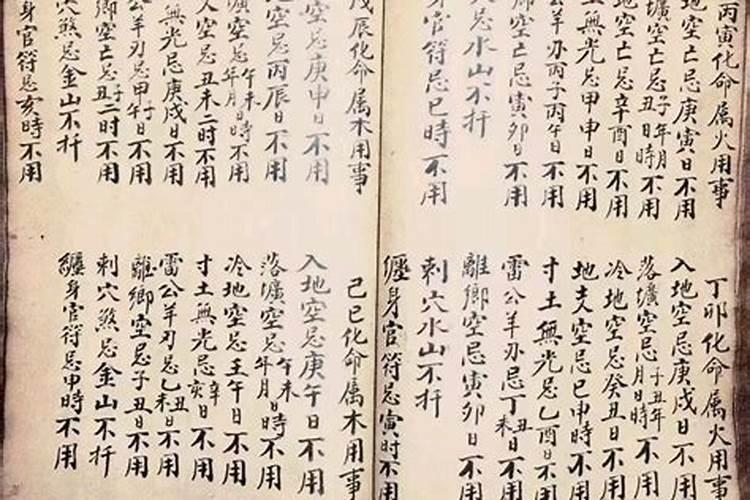 丙寅化命属火用事
地空忌庚寅日不用
壙空亡忌子年月丑日時不用
地空亡忌辛酉日不用
無光忌甲申日不用
公羊刃丙子丙午日不用
空亡忌寅卯日不用
忌水山不扦
身官符忌巳時不用
丁卯化命属火用事
入地空忌庚戌日不用
落壙空忌子丑年月日時不用
冷地空忌癸丑日不用
地支空忌巳申時不用
寸土無光忌乙酉日不用
雷公羊刃忌丁丑未日不用
離鄉空忌寅卯日不用
刺穴水山不扦
纏身官符忌寅時不用
戊辰化命属木用事
空忌庚申日不用
地空忌丙辰日不用
壙空忌午未年月日時不用
空忌丑未二时不用
無光忌庚戌日不用
公羊刃忌甲子午日不用
鄉空亡忌子丑二时不用
穴煞忌金山不扦
身官符忌亥時不用
己巳化命属木用事
入地空忌庚午日不用
落壙空忌午未年月日時不用
冷地空忌壬午日不用
寸土無光忌辛亥日不用
雷公羊刃忌乙丑未日不用
離鄉空忌子丑日不用
刺穴煞忌金山不扦
纏身官符忌申時不用